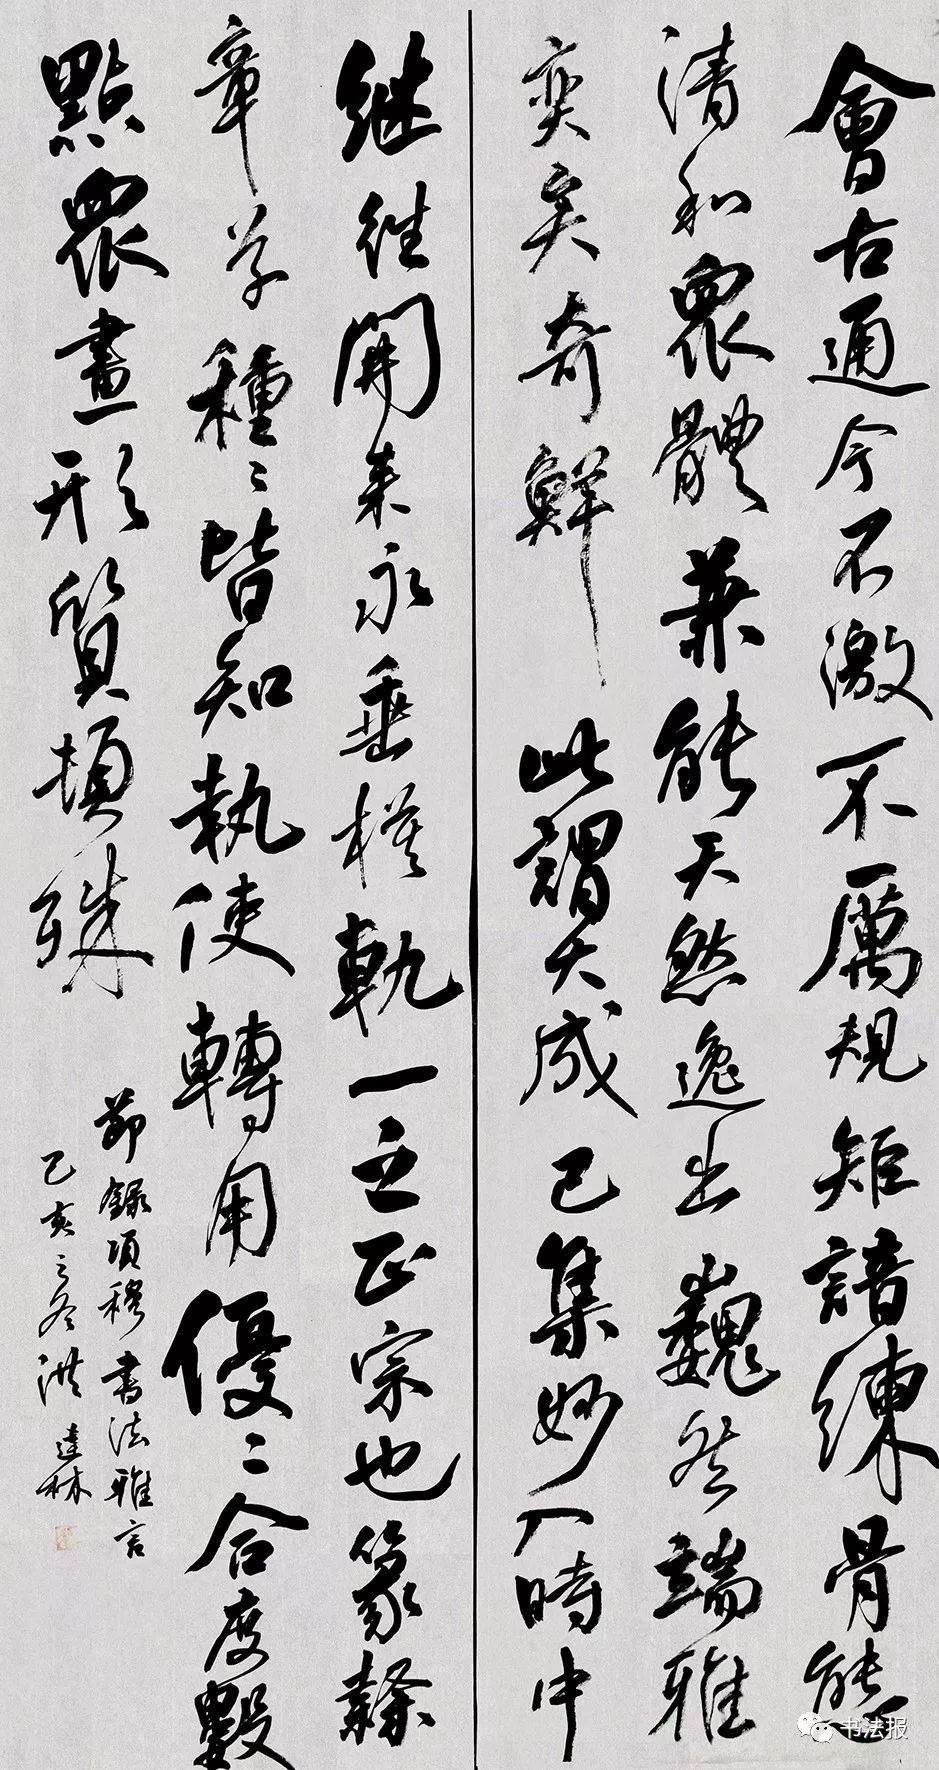 會古通今不激不厲規矩諳練骨態
清和衆體兼能天然逸出巍然端雅
奕奕奇鮮此謂大成已集妙入時中
继往開来永垂模軌一之正宗也篆隸
章草種〻皆知執使轉用優〻合度數
點衆畫形質頓殊
節錄項穆書法雅言
乙亥之冬洪達林
书法报